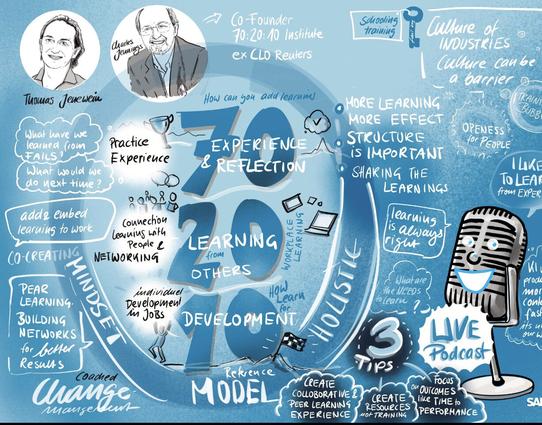 Thomas Jenewein
Charles
Jennings
Co-Founder
70:20:10 Institute
ex CLO Reuters
Schooling
training
?
Culture of
INDUSTRIES
Culture can be
a barrier
How can you add learning
70
EXPERIENCE
& REFLECTION
Practice
Experience
What have we
learned from
FAILS?
What would we
do next time?
add & embed
learning to work
CO-CREATING
MINDSET
PEAR
LEARNING,
BUILDING
NETWORKS
for better
RESULTS
Coached
Change
management
20
LEARNING
from
OTHERS
Connection
Learning with
People &
NETWORKING
WORKPLACE
LEARNING
10
DEVELOPMENT
individual
Development
in JOBS
How
Learn
Reference
MODEL
HOLISTIC
MORE LEARNING
MORE EFFECT
STRUCTURE
is IMPORTANT
SHARING THE
LEARNINGS
OPENESS
for PEOPLE
I LIKE
TO LEA
from EXPER
learning
is always
right
What are
the NEEDS
to learn?
LIVE
Podcast
3
TIPS
CREATE
COLLABORATIVE &
PEER LEARNING
EXPERIENCE
CREATE
RESOURCES
NOT TRAINING
FOCUS
on OUTCOMES
like TIME to
PERFORMANCE